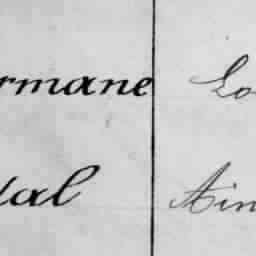 rmane Lo
tal Ain